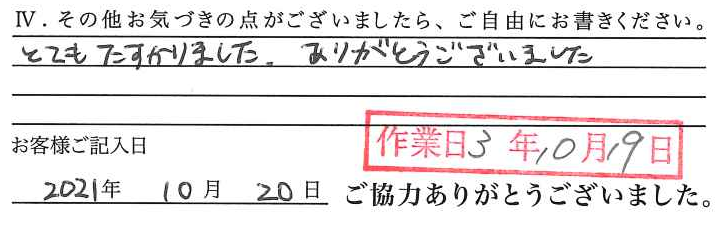 Ⅳ．その他お気づきの点がございましたら、ご自由にお書きください。
とてもたすかりました。ありがとうございました
お客様ご記入日
作業日3年10月19日
2021年 10月 20日 ご協力ありがとうございました。